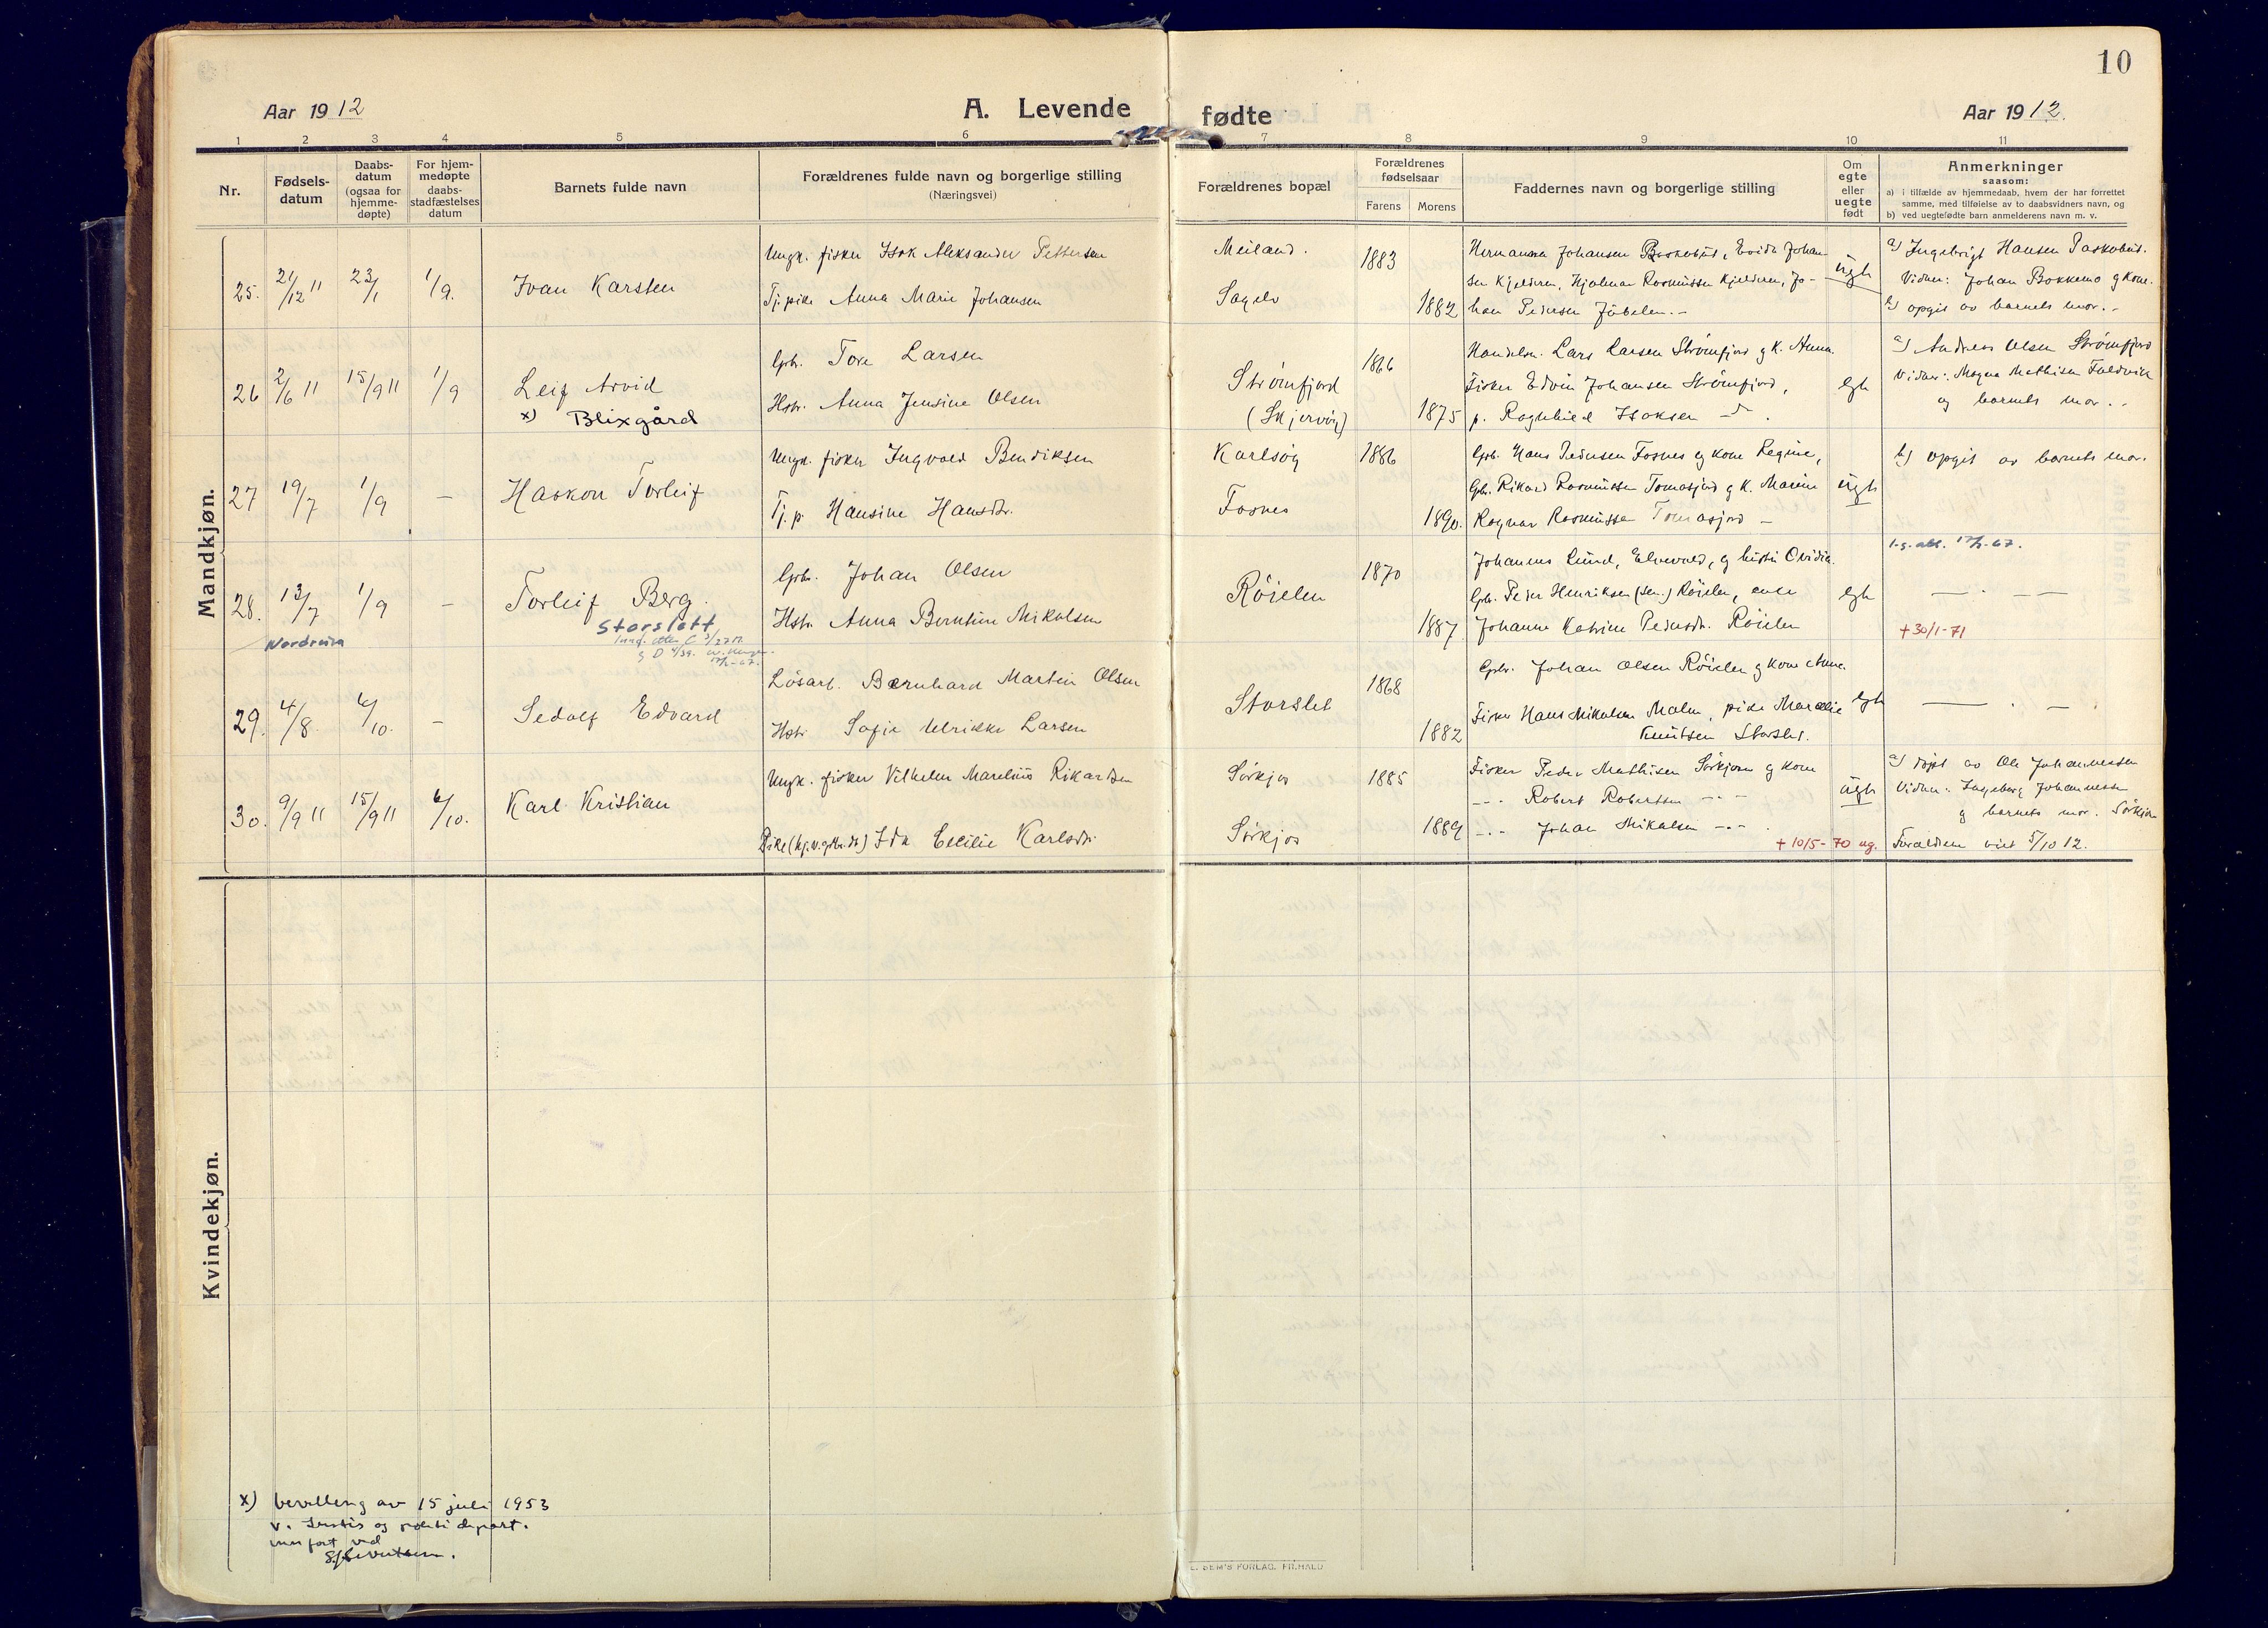 10
Aar 1912
A. Levende
fødte
Aar 1912.
1 2 3 4 5 6 7 8 9 10 11
Nr.
Fødsels-
datum
Daabs-
datum
(ogsaa for
hjemme-
døpte)
For hjem-
medøpte
daabs-
stadfæstelses
datum
Barnets fulde navn
Forældrenes fulde navn og borgerlige stilling
(Næringsvei)
Forældrenes bopæl
Forældrenes
fødselsaar
Farens Morens
Faddernes navn og borgerlige stilling
Om
egte
eller
uegte
født
Anmerkninger
saasom:
a) i tilfælde av hjemmedaab, hvem der har forrettet
samme, med tilføielse av to daabsvidners navn, og
b) ved uegtefødte barn anmelderens navn m. v.
Mandkjøn.
25. 21/12 11 23/1 1/9. Ivan Karsten
Ungk. fisker Isak Aleksander Pettersen
Tj. pike Anna Marie Johansen
Meiland.
Sagelv
1883
1882
Johan
sen Kjelderen, Hjalmar Rasmussen Kjelderen, Jo-
han Pedersen
ugh
a) Ingebrigt Hansen
Vidner: Johan Bakkemo g kone.
b) opgit av barnets mor. -
26 2/6 11 15/9 11 1/9 Leif Arvid
x) Blixgård
Gbr. Tore Larsen
Hstr. Anna Jensine Olsen
Strømfjord
(Skjervøy)
1866
1875
Handelsm. Lars Larsen Strømfjord g k. Anna.
Fisker Edvin Johansen Strømfjord,
p. Ragnhild Isaksen
egh
a) Andreas Olsen Strømfjord
Vidner: Magna Mathisen
og barnets mor. -
27 19/7 1/9 - Haakon Torleif
Ungk. fisker Ingvald Bendiksen
Tj. p. Hansine Hansdtr.
Karlsøy
Fosnes
1886
1890.
Gbr. Hans Pedersen Fosnes og kone Regine,
Gbr. Rikard Rasmussen g k. Marie
Ragnar Rasmussen
ugh
b) opgit av barnets mor.
28. 13/7 1/9 - Torleif Berg.
Storslett
Nordreisa
Gbr. Johan Olsen
Hstr. Anna Berntine Mikalsen
Røielen
1870
1887
Johannes Lund, Elvevold, g hustru Ovidia.
Gbr. Peder Henriksen (sen.) Røielen, enke
Johanne Katrine Pedersdtr. Røielen
egh
- . - -
+ 30/1-71
29. 4/8 6/10. - Sedolf Edvard
Løsarb. Bernhard Martin Olsen
Hstr Sofie Ulrikke Larsen
Storslet
1868
1882
Gbr. Johan Olsen Røielen g kone Anna.
Fisker Hans Mikalsen Malm, pike Maralie
Knutsen Storslet.
egh
- . -
30. 9/9 11 15/9 11 6/10. Karl Kristian
Ungk. fisker Vilhelm Marelius Rikardsen
Pike Ida Cecilie Karlsdtr
Sørkjos
Sørkjos
1885
1889
Fisker Peder Mathisen Sørkjosen g kone
-.- Robert Robertsen -.-
-.- Johan Mikalsen -.-
+ 10/5-70 ug.
ugh
a) døpt av Ole Johannessen
Vidner: Ingeborg Johannessen
g barnets mor. Sørkjosen
Forældrene viet 5/10 12.
Kvindekjøn.
x) bevilling av 15 juli 1953
v. Justis og politi depart.
innført ved
SEM'S FORLAG, FR.HALD